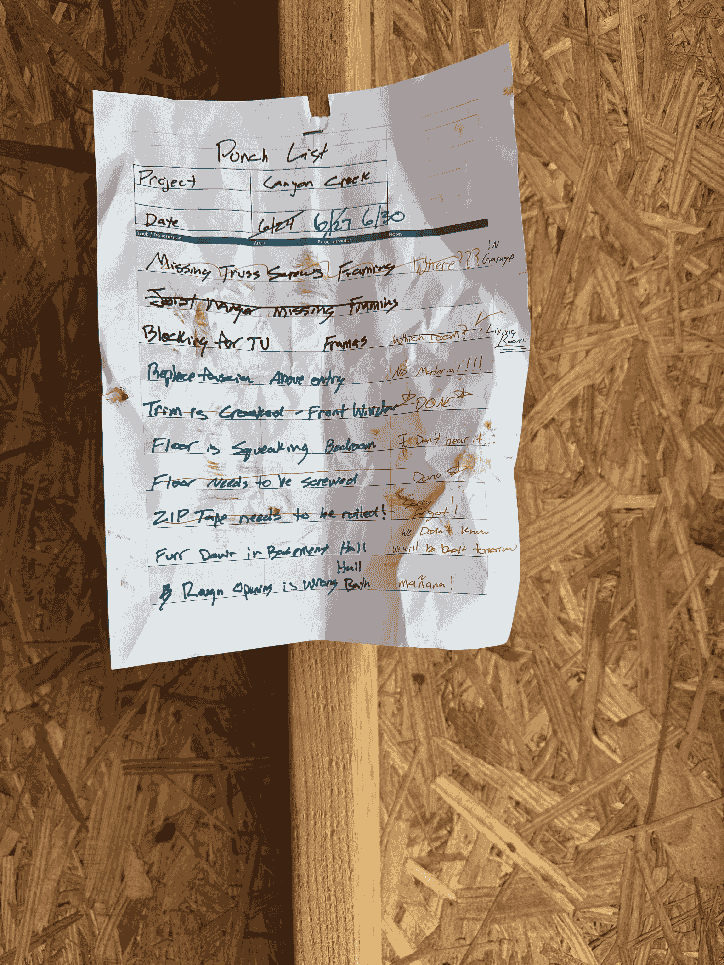 Punch List
Project Canyon Creek
Date 6/24 6/27 6/30
Missing Truss Screws Framing Where??? IN Garage
Joist Hanger Missing Framing
Blocking for TV Frames which room? Living Room
Replace fascia Above entry No Material!!!
Trim is Cracked - Front Window *DONE*
Floor is Squeaking Bedroom I Don't hear it
Floor Needs to be screwed Done
ZIP Tape needs to be rolled!
We Don't know
Furr Down in Basement Hall We will be back tomorrow
Hall
Rough Opening is Wrong Bath Mañana!